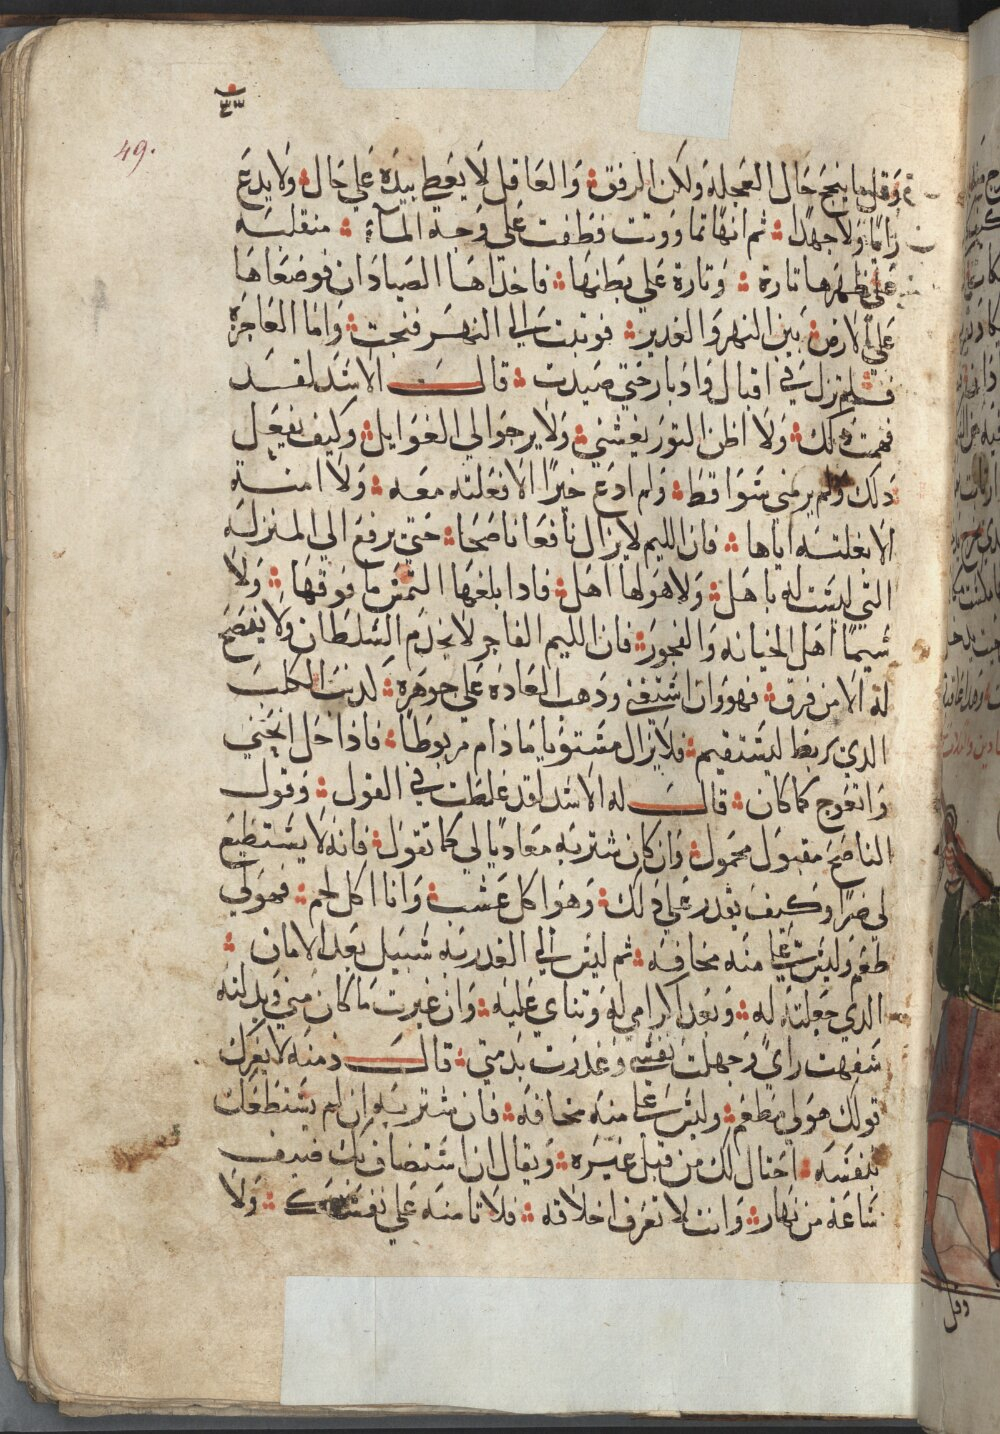 ٤٣
49.
وقل ما ينجح حال العجلة ولكن الرفق والعاقل لا يعطي بيده علي حال ولا يدع
رايًا ولا جهدًا ثم انها تماووتت وطفت علي وجه المآء منقلبه
علي ظهرها تارة وتارة علي بطنها فاخداها الصيادان فوضعاها
علي الارض بين النهر والغدير فوتبت الي النهر فنجت واما العاجزة
فلم تزل في اقبال وادبار حتي صيدت قال الاسد لقد
فهمت دلك ولا اظن التور يغشني ولا يرجوا لي الغوايل وكيف يفعل
دلك ولم ير مني سوا قط ولم ادع خيرًا الا فعلته معه ولا امنيه
الا بغلته اياها فان الليم لا يزال نافعا ناصحا حتي يرفع الي المنزله
التي ليست له باهل ولا هو لها اهل فادا بلغها التمس ما فوقها ولا
سيما اهل الخيانه والفجور فان الليم الفاجر لا يخدم السلطان ولا ينصح
له الا من فرق فهو وان استغني ودهب العاده علي جوهره كدنب الكلب
الدي يربط ليستقيم فلا يزال مستويا ما دام مربوطا فادا حل انحني
واتعوج كما كان قال له الاسد لقد غلطت في القول وقول
الناصح مقبول محمول وان كان شتربه معاديا لي كما تقول فانه لا يستطيع
لي ضرًا وكيف يقدر علي دلك وهو اكل عشب وانا اكل لحم فهو لي
طعم وليس علي منه مخافه ثم ليس الي الغدر به سبيل بعد الامان
الدي جعلته له وبعد اكرامي له وتناي عليه وان غيرت ما كان مني وبدلته
سفهت رايي وجهلت نفسي وغدرت بدمتي قال دمنه لا يغرك
قولك هو لي مطعم وليس علي منه مخافه فان شتربه ان لم يستطعك
بنفسه احتال لك من قبل غيره ويقال ان استضافك ضيف
ساعه من نهار وانت لا تعرف اخلاقه فلا تامنه علي نفسك ولا
وقل